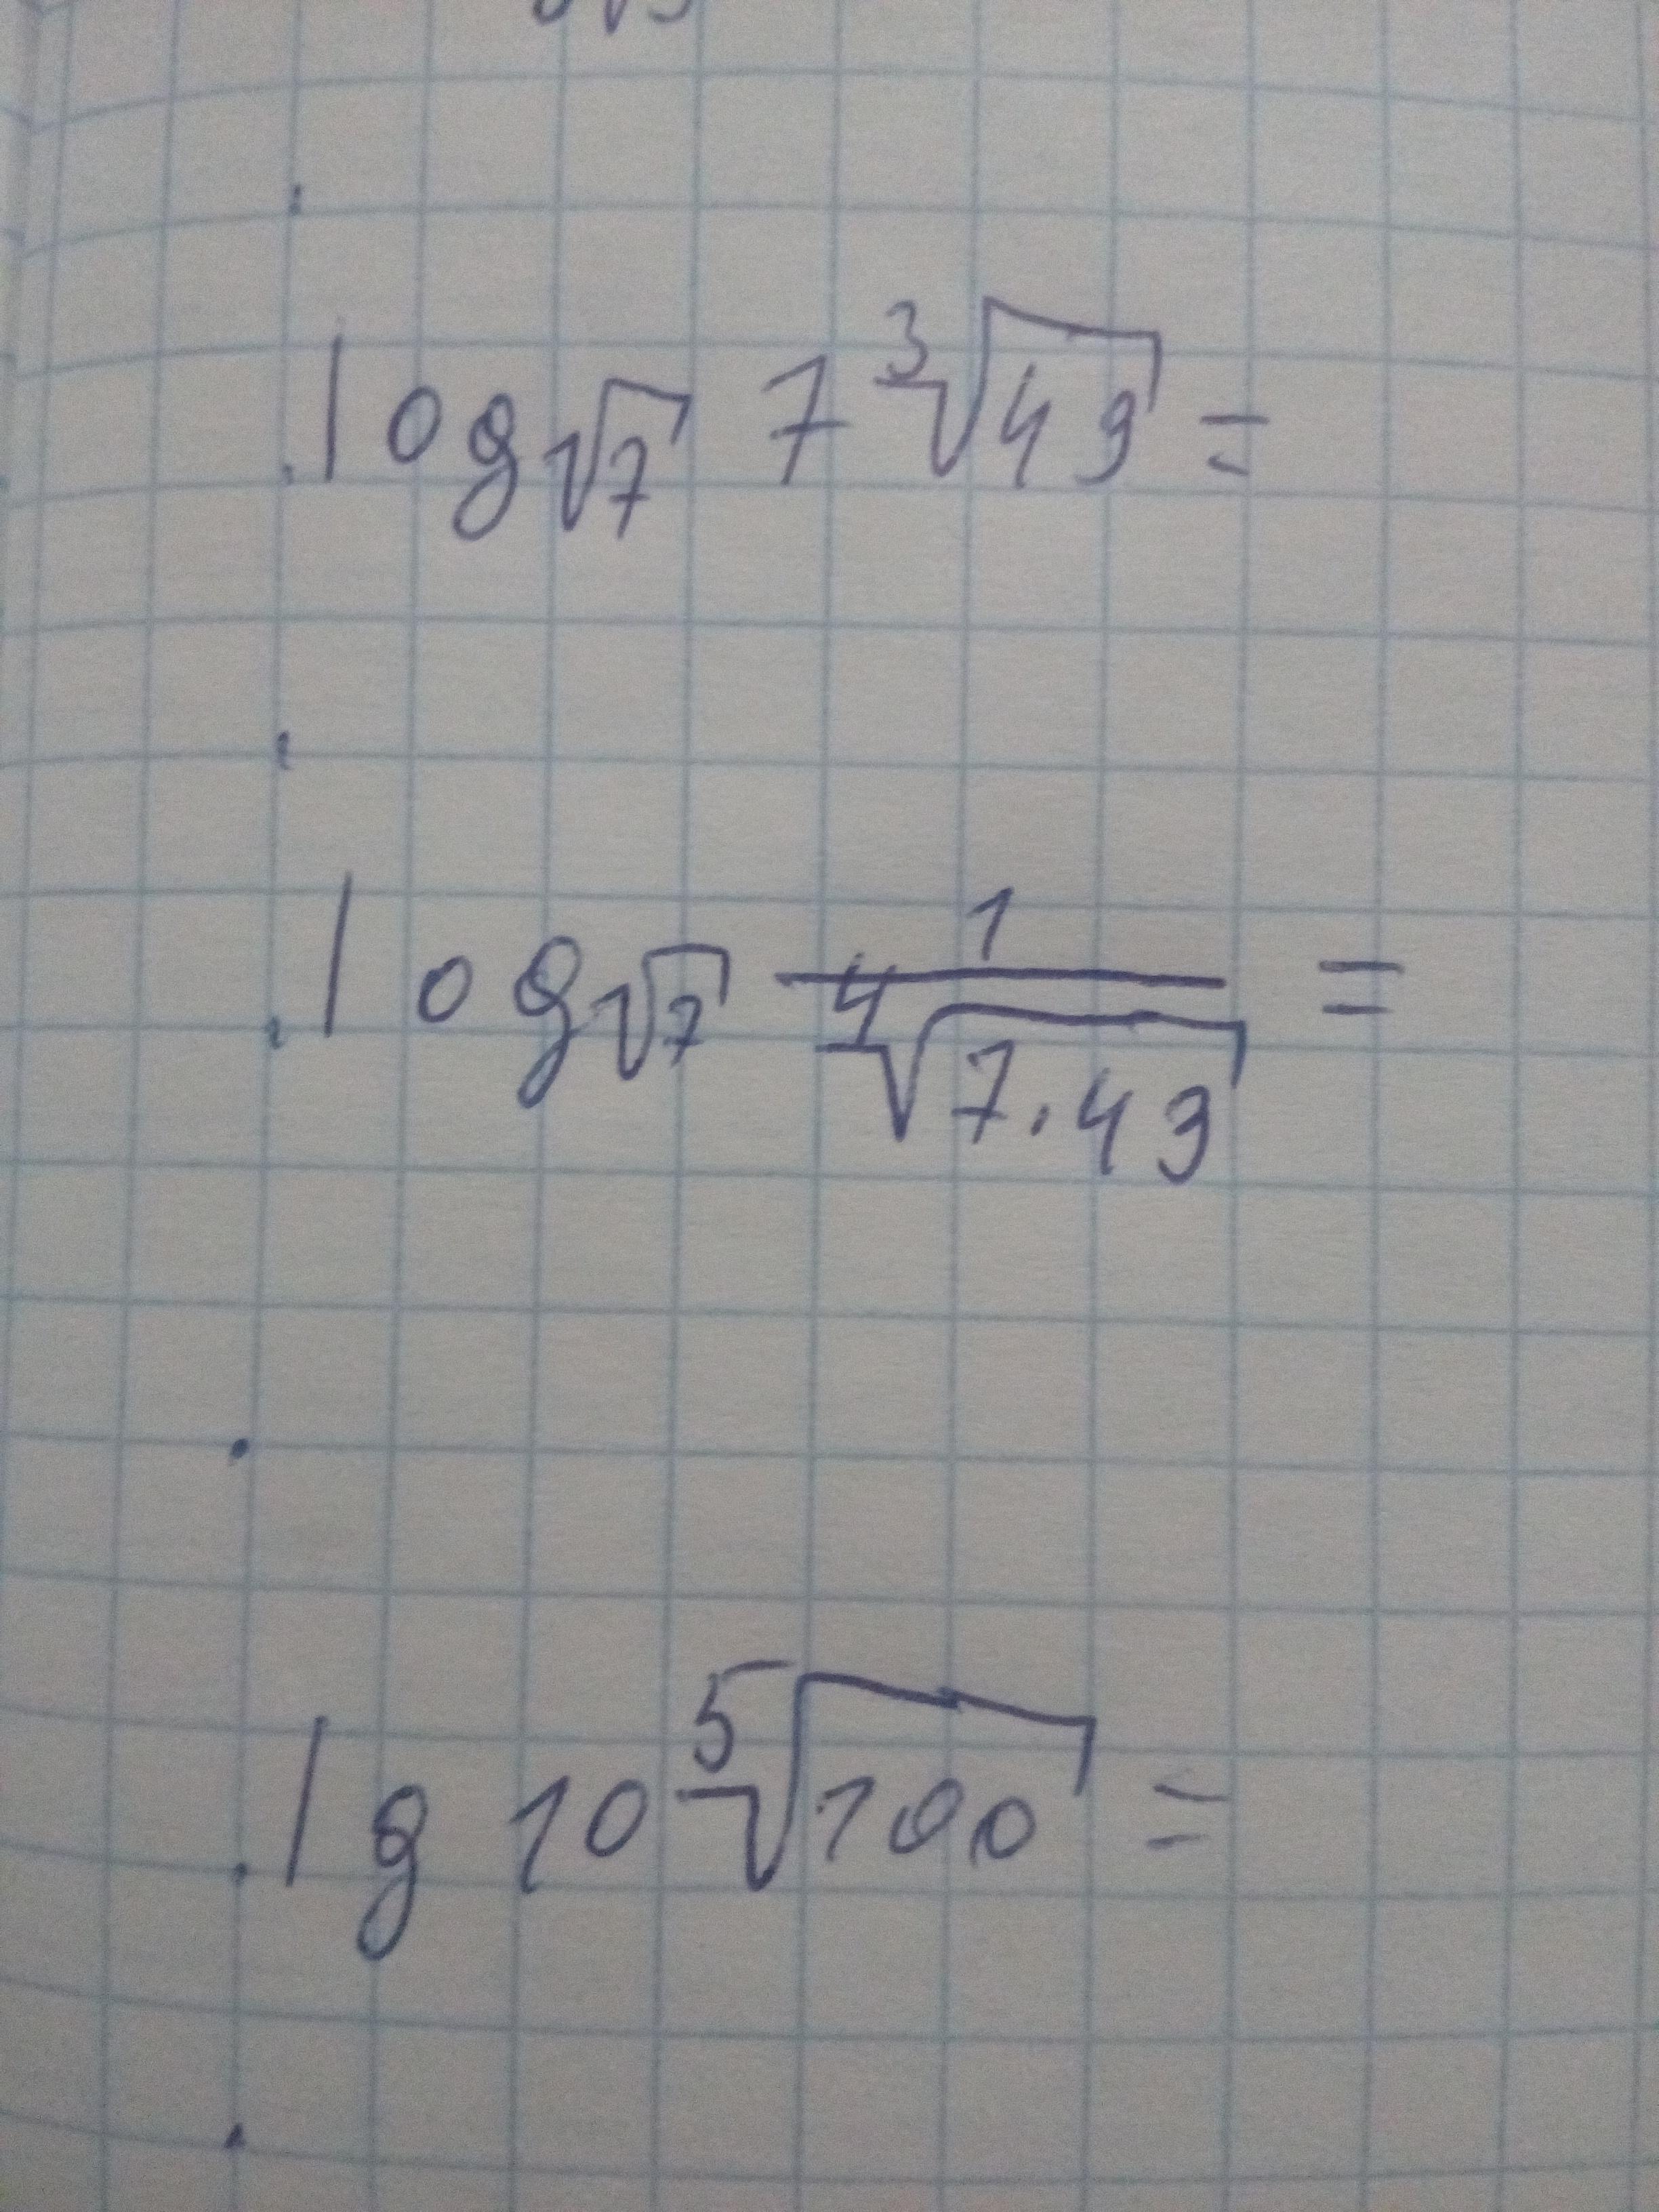 log√7 7 ³√49 =
log√7 1/⁴√7.49 =
lg 10 ⁵√100 =